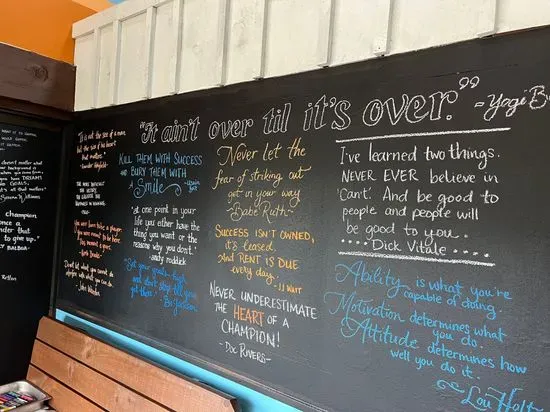 "It ain't over til it's over."
- Yogi B
WHAT IT TO HAPPEN
WOULD HAPPEN
doesn't matter what
your background is
where you come from.
have DREAMS
GOALS,
that's all that matters"
Serena Williams
Champion
"It's not the size of a man,
but the size of his heart
that matters."
You were born to be a player.
You were meant to be here.
This moment is yours.
Herb Brooks
Don't let what you cannot do
interfere with what you can do.
John Wooden
KILL THEM WITH SUCCESS
AND BURY THEM WITH
A Smile
"at one point in your
life you either have the
thing you want or the
reasons why you don't."
-andy roddick
"Set your goals high,
and don't stop till you
get there" - Bo Jackson
Never let the
fear of striking out
get in your way
"Babe Ruth"
SUCCESS ISN'T OWNED,
it's leased.
AND RENT IS DUE
every day.
- JJ WATT
NEVER UNDERESTIMATE
THE HEART OF A
CHAMPION!
- DOC RIVERS -
I've learned two things.
NEVER EVER believe in
'Can't'. And be good to
people and people will
be good to you.
Dick Vitale
Ability is what you're
capable of doing.
Motivation determines what
you do.
Attitude determines how
well you do it.
Lou Holt